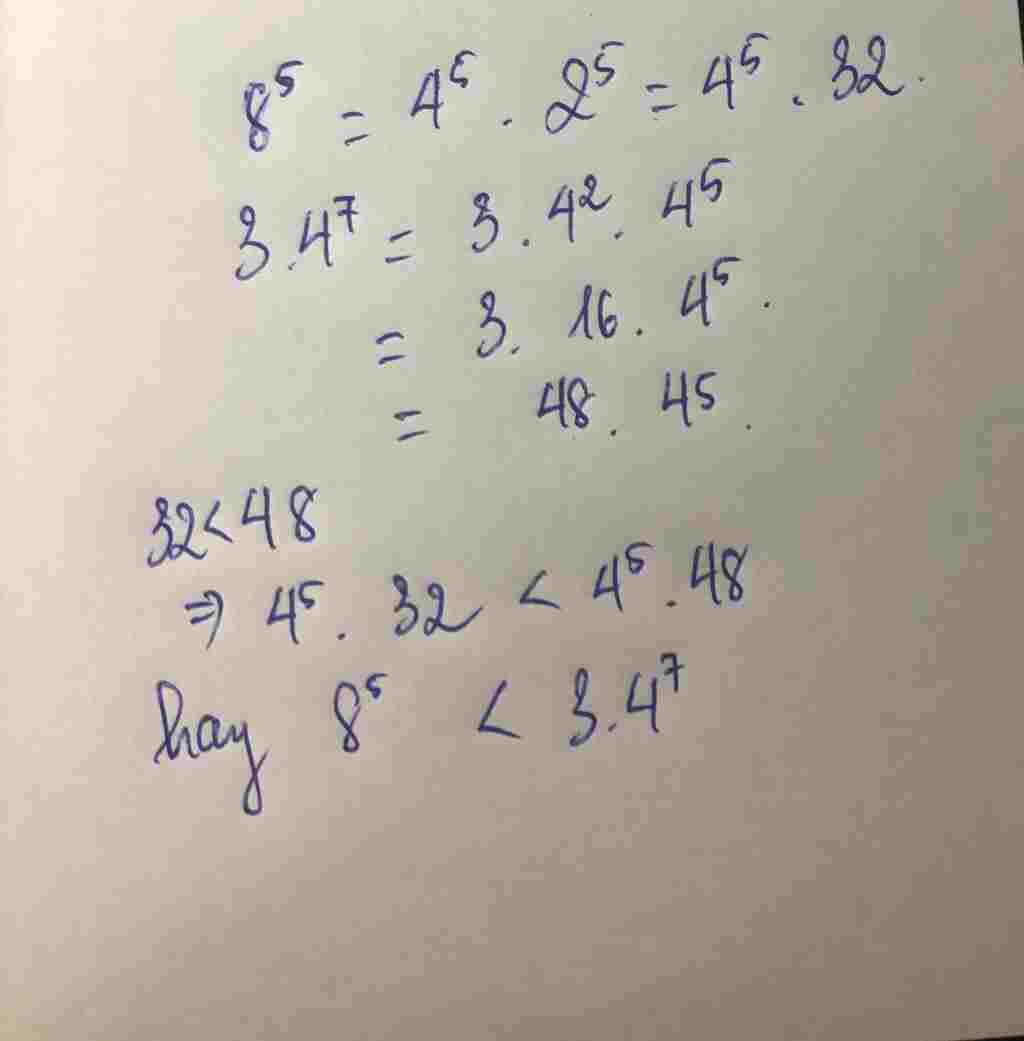 8⁵ = 4⁵ . 2⁵ = 4⁵ . 32.
3.4⁷ = 3 . 4² . 4⁵
= 3. 16 . 4⁵ .
= 48 . 4⁵ .
32 < 48
⇒ 4⁵ . 32 < 4⁵ . 48
hay 8⁵ < 3.4⁷